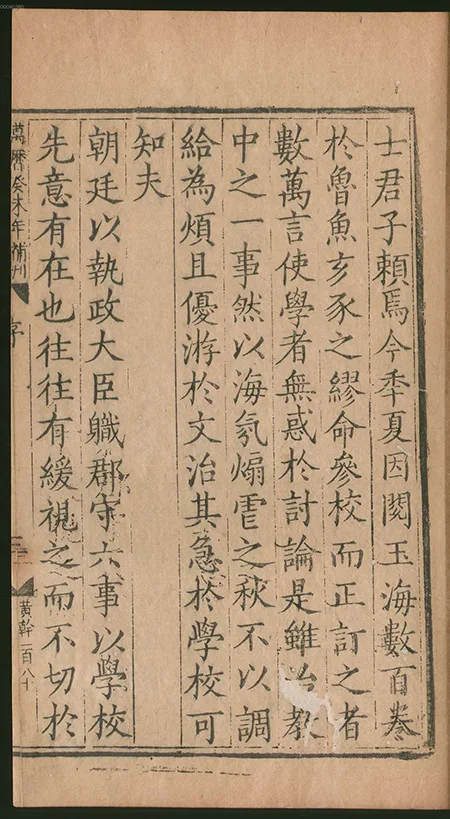 士君子頼焉今年夏因閱玉海數百巻
於魯魚亥豕之繆命參校而正訂之者
數萬言使學者無惑於討論是雖治教
中之一事然以海氛煽虐之秋不以調
給為煩且優游於文治其急於學校可
知夫
朝廷以執政大臣職郡守六事以學校
先意有在也往往有緩視之而不切於
萬曆癸未年補刊
序
三
黃幹一百八十